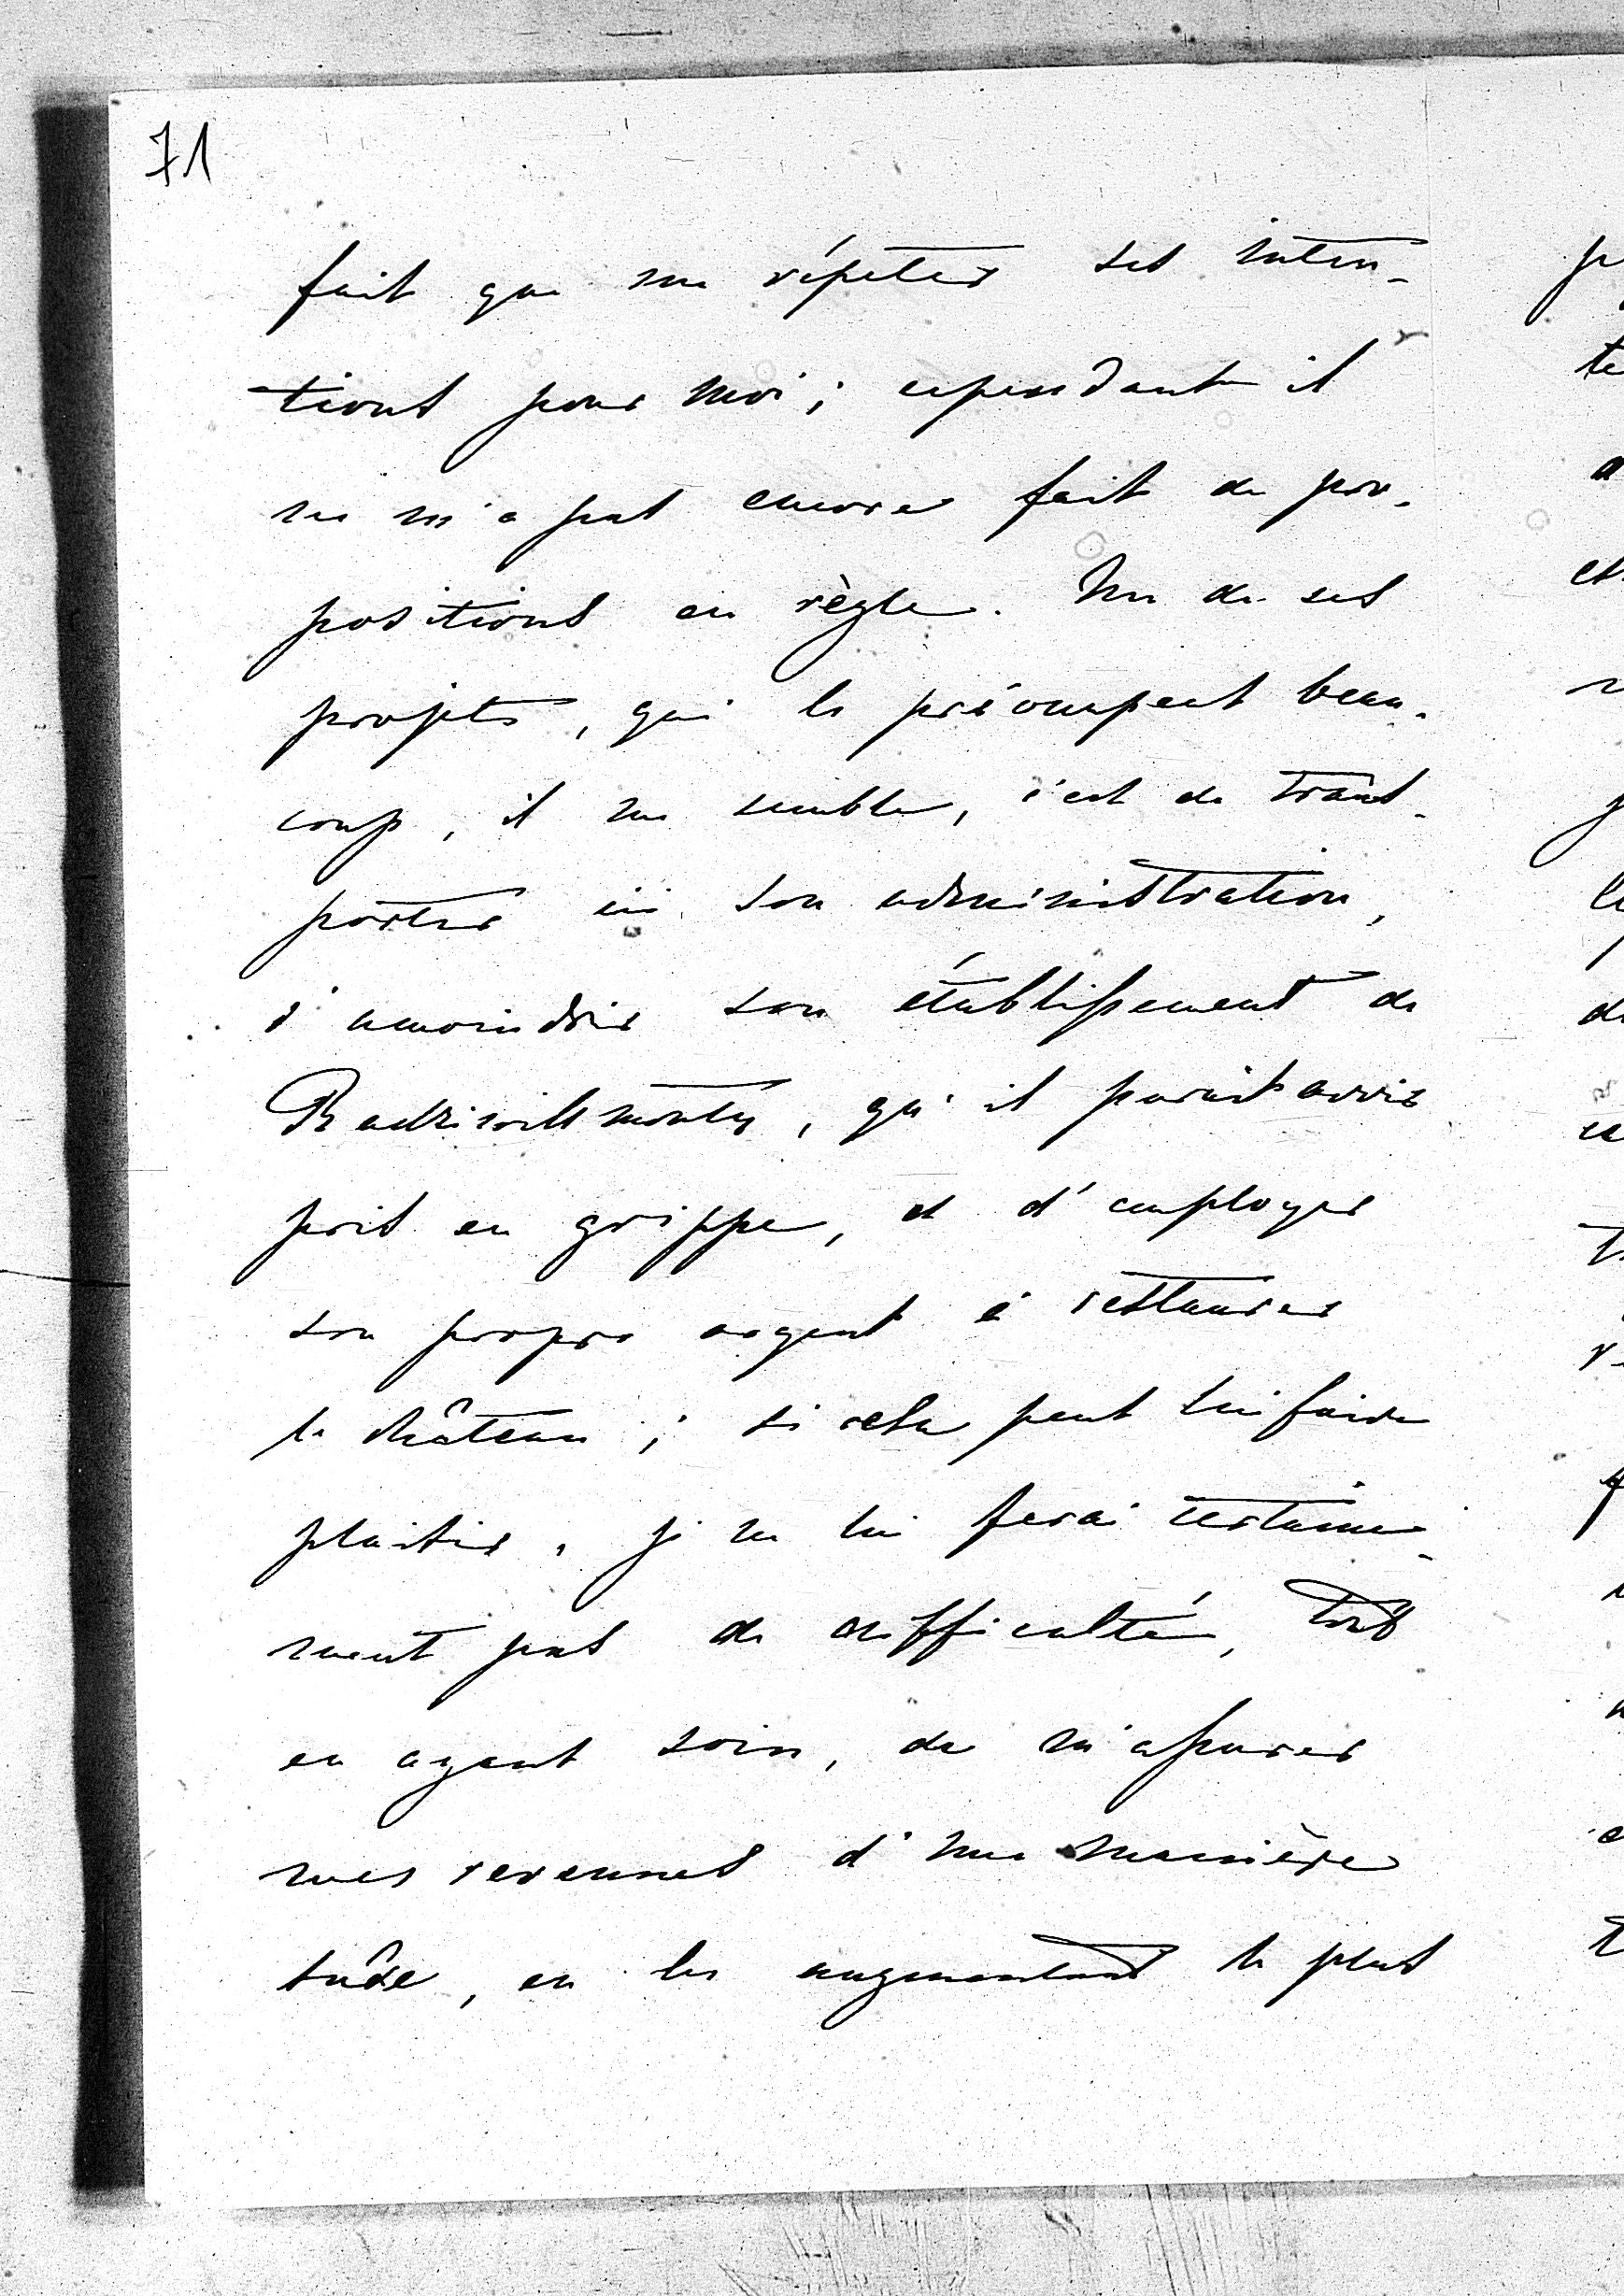 71
fait que me répéter ses inten-
tions pour moi; cependant il
ne m'a pas encore fait de pro-
positions en règle. Un de ses
projets, qui le préoccupent beau-
coup, il me semble, c'est de trans-
porter ici son administration,
d'amoindrir son établissement de
Radziwillmonty, qu'il parait avoir
pris en grippe, et d'employer
son propre argent à restaurer
le château; si cela peut lui faire
plaisir, je ne lui ferai certaine-
ment pas de difficultés, tout
en ayant soin, de m'assurer
mes revenues d'une manière
sûre, en les augmentant le plus